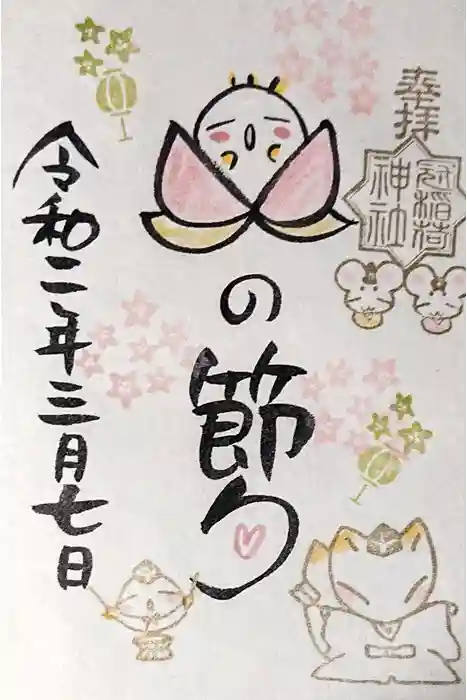 奉拝
冠稲荷
神社
の節句
令和二年三月七日